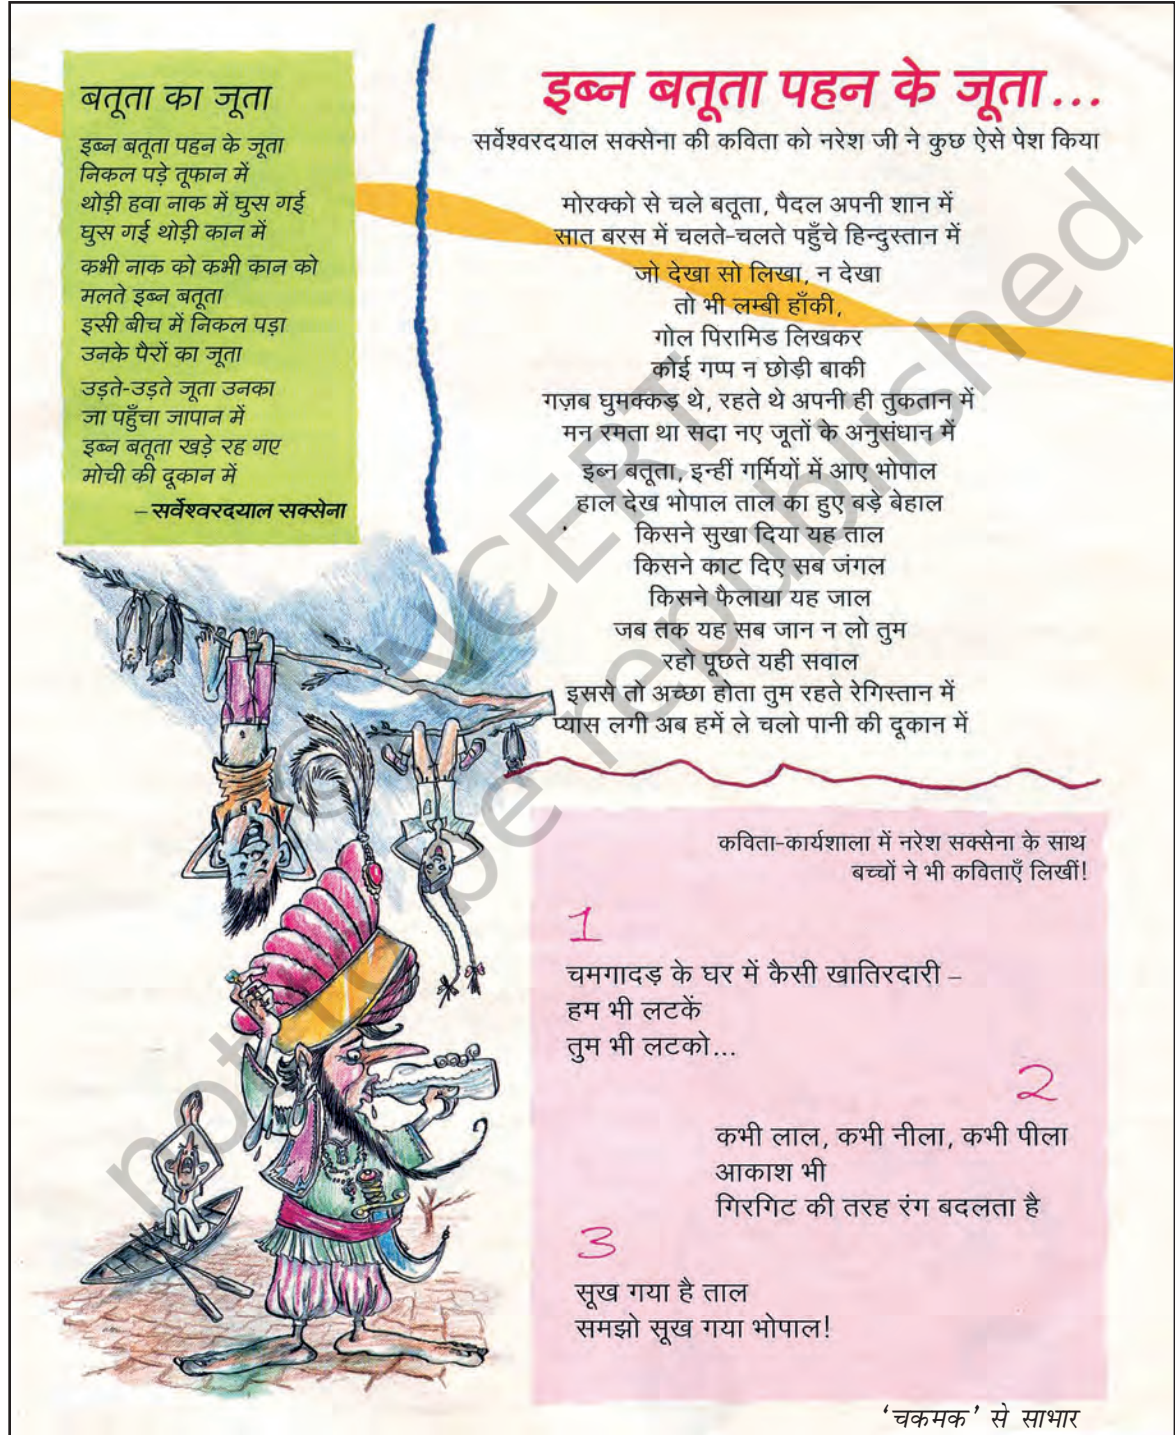 बतूता का जूता
इब्न बतूता पहन के जूता
निकल पड़े तूफान में
थोड़ी हवा नाक में घुस गई
घुस गई थोड़ी कान में
कभी नाक को कभी कान को
मलते इब्न बतूता
इसी बीच में निकल पड़ा
उनके पैरों का जूता
उड़ते-उड़ते जूता उनका
जा पहुँचा जापान में
इब्न बतूता खड़े रह गए
मोची की दूकान में
– सर्वेश्वरदयाल सक्सेना
इब्न बतूता पहन के जूता...
सर्वेश्वरदयाल सक्सेना की कविता को नरेश जी ने कुछ ऐसे पेश किया
मोरक्को से चले बतूता, पैदल अपनी शान में
सात बरस में चलते-चलते पहुँचे हिन्दुस्तान में
जो देखा सो लिखा, न देखा
तो भी लम्बी हाँकी,
गोल पिरामिड लिखकर
कोई गप्प न छोड़ी बाकी
गज़ब घुमक्कड़ थे, रहते थे अपनी ही तुकतान में
मन रमता था सदा नए जूतों के अनुसंधान में
इब्न बतूता, इन्हीं गर्मियों में आए भोपाल
हाल देख भोपाल ताल का हुए बड़े बेहाल
किसने सुखा दिया यह ताल
किसने काट दिए सब जंगल
किसने फैलाया यह जाल
जब तक यह सब जान न लो तुम
रहो पूछते यही सवाल
इससे तो अच्छा होता तुम रहते रेगिस्तान में
प्यास लगी अब हमें ले चलो पानी की दूकान में
कविता-कार्यशाला में नरेश सक्सेना के साथ
बच्चों ने भी कविताएँ लिखीं!
1
चमगादड़ के घर में कैसी खातिरदारी –
हम भी लटकें
तुम भी लटको...
2
कभी लाल, कभी नीला, कभी पीला
आकाश भी
गिरगिट की तरह रंग बदलता है
3
सूख गया है ताल
समझो सूख गया भोपाल!
‘चकमक’ से साभार
© NCERT
not to be republished